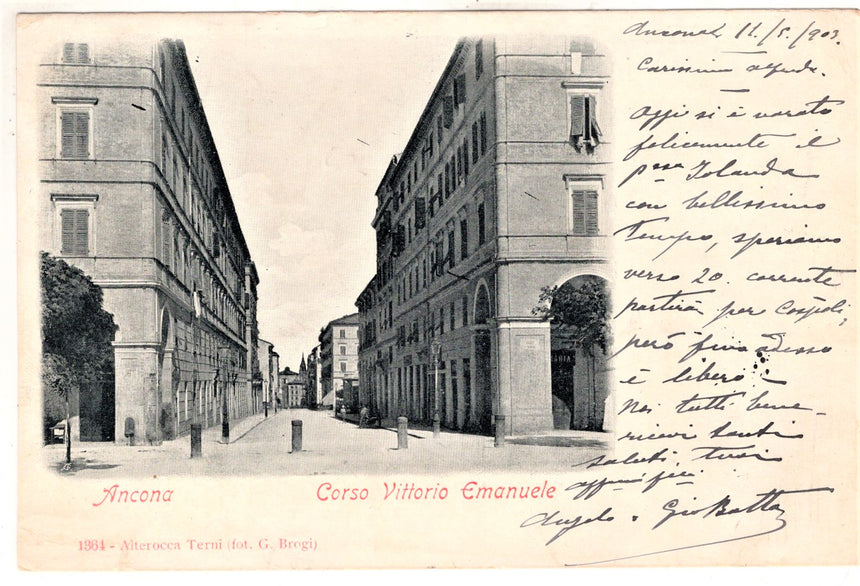 Ancona 11/5/903.
Carissimo
Oggi si è varato
felicemente il
p.sso Jolanda
con bellissimo
tempo, speriamo
verso 20. corrente
partirà per
però fino adesso
è libero
Noi tutti bene
ricevi tanti
saluti tuoi
aff.mi
Angelo e Gio Batta
Ancona
Corso Vittorio Emanuele
1364 - Alterocca Terni (fot. G. Brogi)